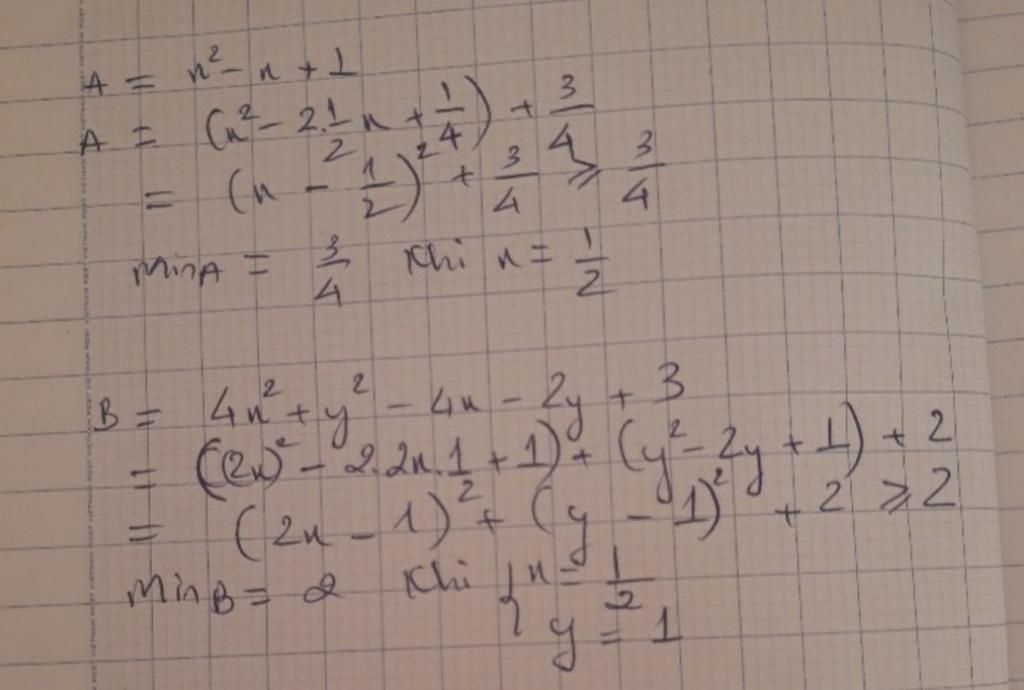 A = x² - x + 1
A = (x² - 2.1/2x + 1/4) + 3/4
= (x - 1/2)² + 3/4 ⩾ 3/4
Min A = 3/4 Khi x = 1/2
B = 4x² + y² - 4x - 2y + 3
= ((2x)² - 2.2x.1 + 1) + (y² - 2y + 1) + 2
= (2x - 1)² + (y - 1)² + 2 ⩾ 2
Min B = 2 Khi { x = 1/2
y = 1